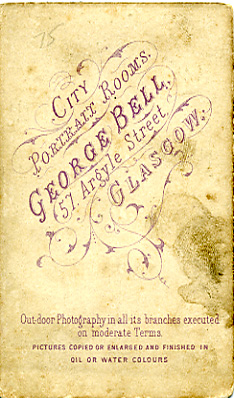 15
CITY
PORTRAIT ROOMS.
GEORGE BELL,
157, Argyle Street,
GLASGOW.
Out-door Photography in all its branches executed
on moderate Terms.
PICTURES COPIED OR ENLARGED AND FINISHED IN
OIL OR WATER COLOURS